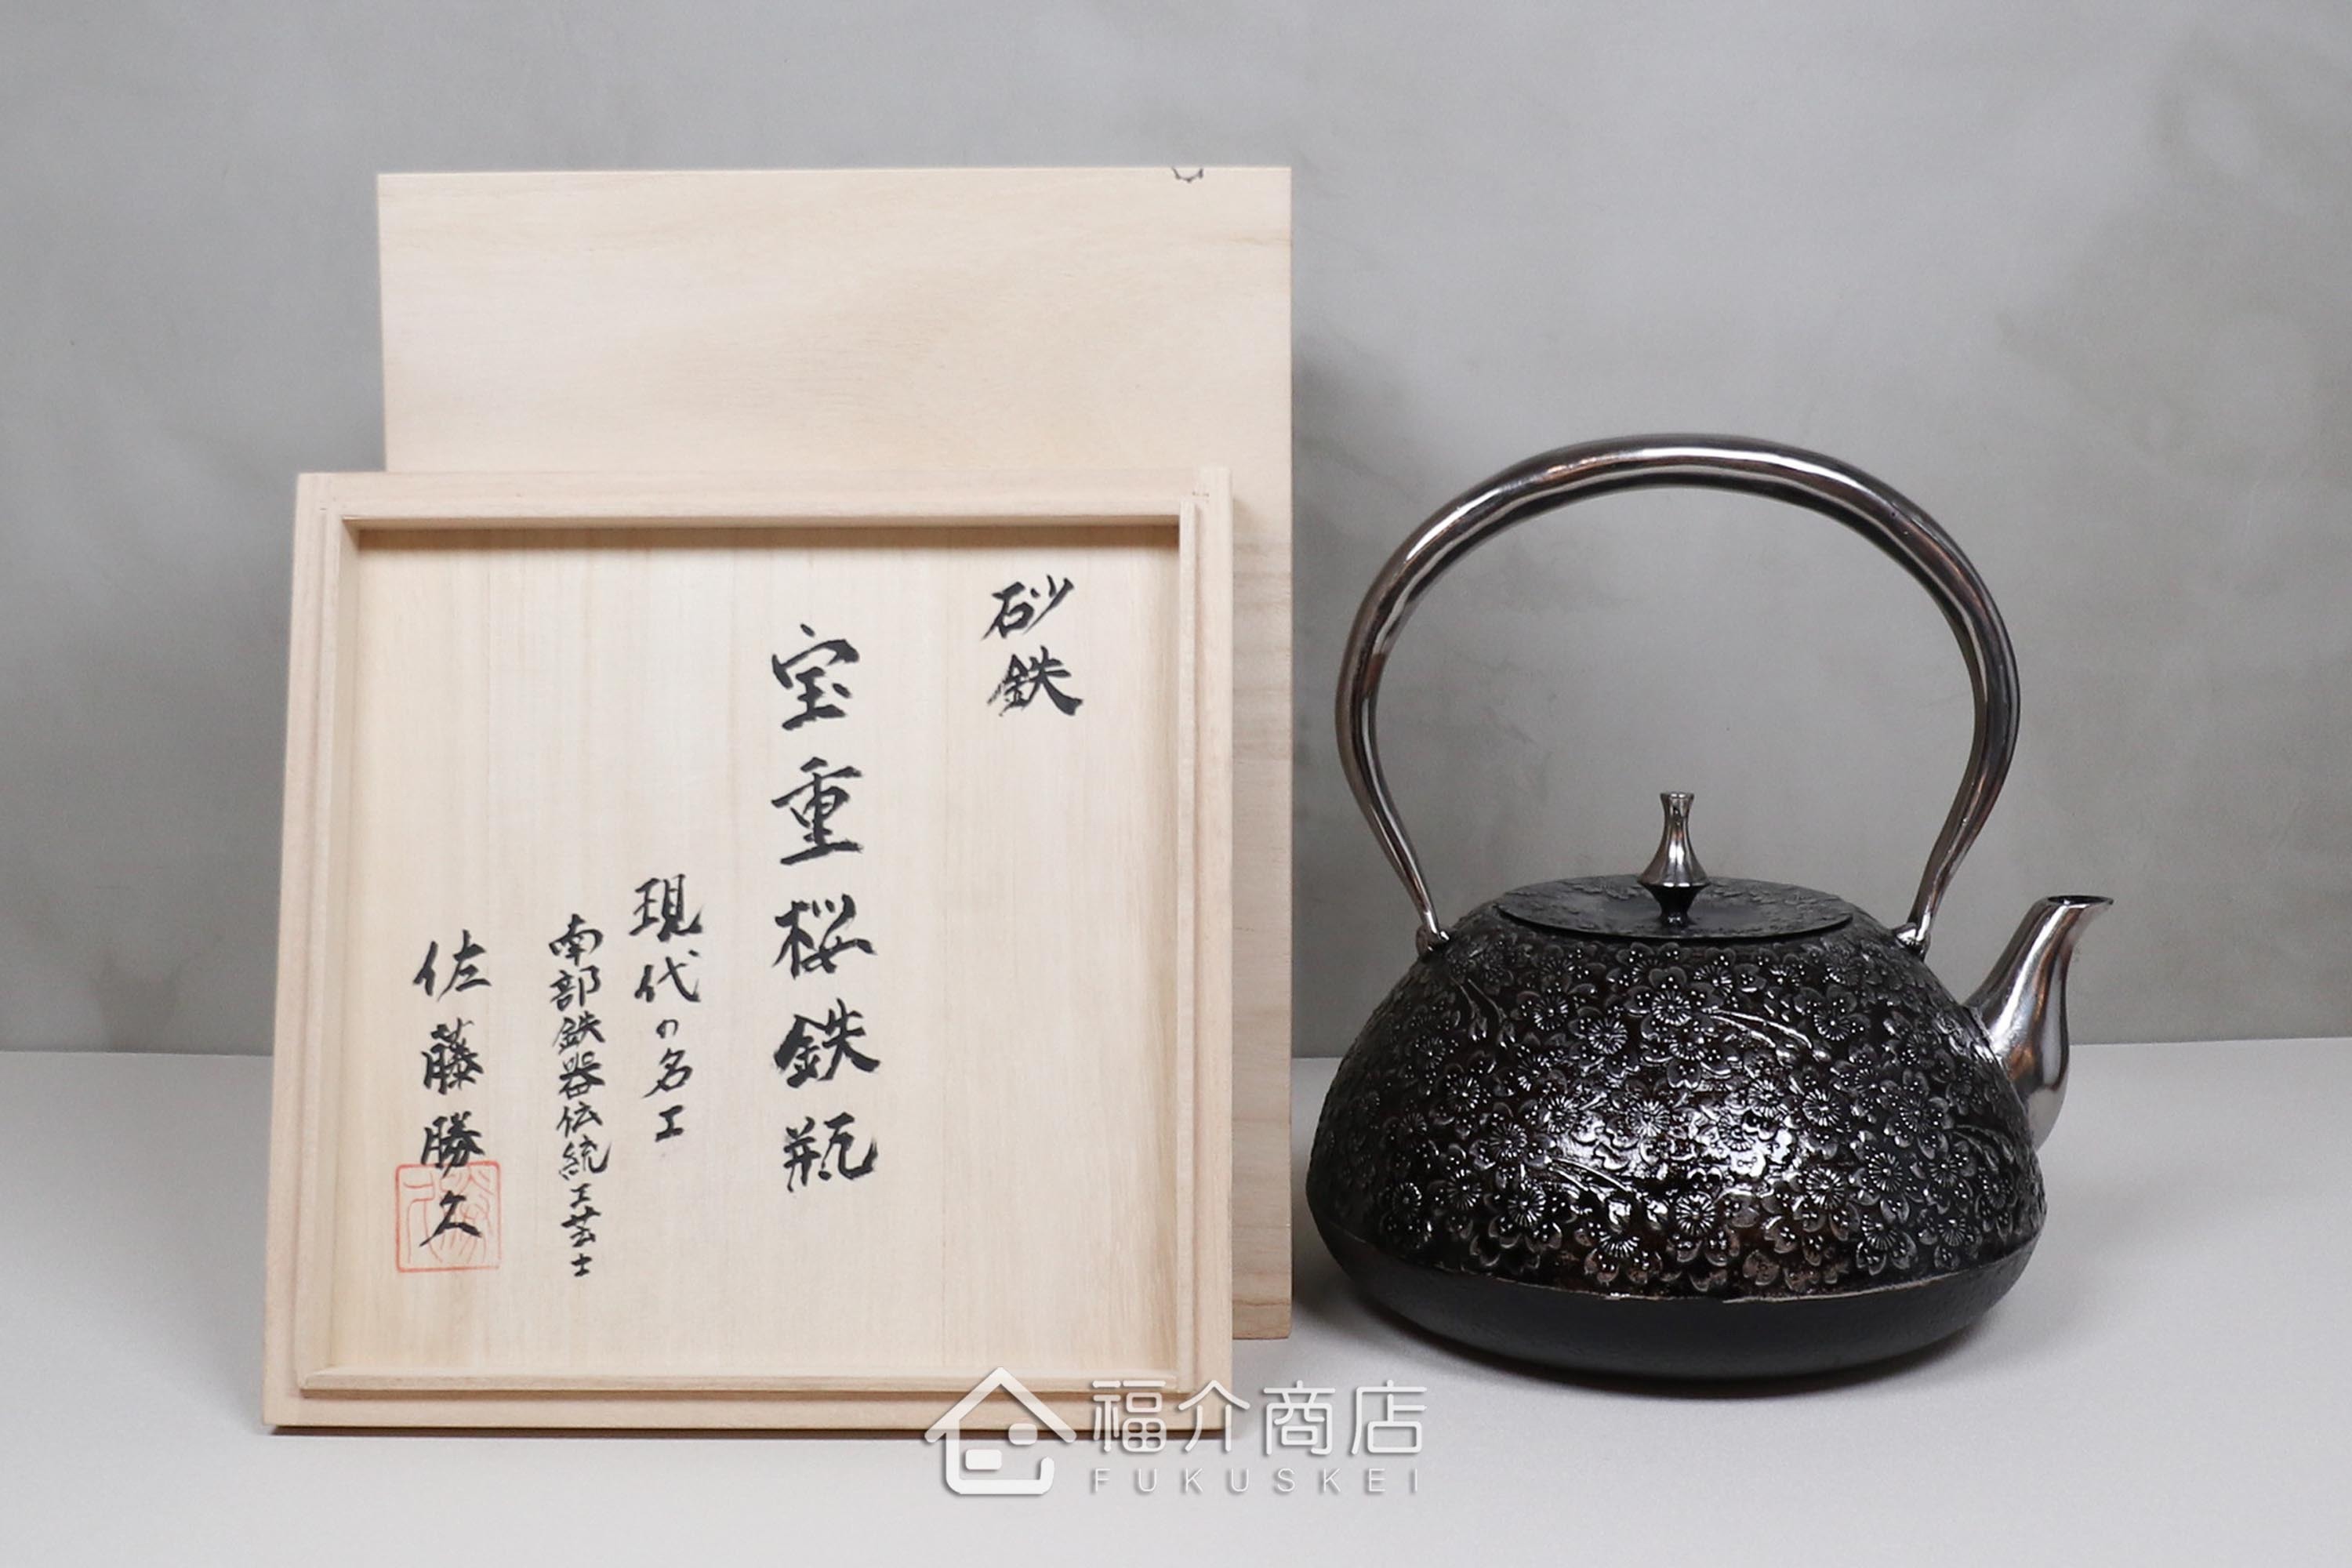 砂鉄
宝重桜鉄瓶
現代の名工
南部鉄器伝統工芸士
佐藤勝久
福介商店
FUKUSKEI